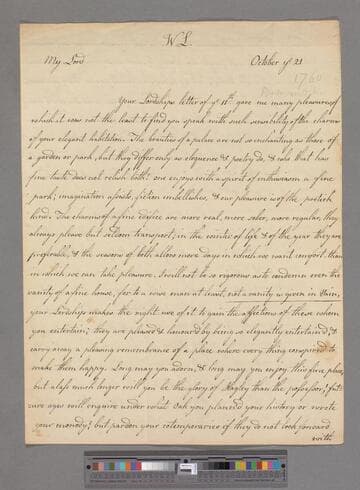 W L
My Lord October ye 21
1760
Your Lordships letter of ye 11th gave me many pleasures of
which it was not the least to find you speak with such sensibility of the charms
of your elegant habitation. The beauties of a palace are not so enchanting as those of
a garden or park, but they differ only as eloquence & poetry do, & who that has
fine taste does not relish both: one enjoys with a spirit of enthusiasm a fine
park; imagination assists, fiction embellishes, & our pleasure is of the poetick
kind. The charms of a fine edifice are more real, more sober, more regular, they
always please but seldom transport; in the winter of life & of the year they are
preferable, & the seasons of both allow more days in which we want comfort, than
in which we can take pleasure. I will not be so rigorous as to condemn even the
vanity of a fine house, for to a wise man at least, not a vanity is given in Vain,
your Lordship makes the right use of it to gain the affections of those whom
you entertain; they are pleased & honourd by being so elegantly entertained, &
carry away a pleasing remembrance of a place where every thing conspired to
make them happy. Long may you adorn, & long may you enjoy this fine place,
but alass much longer will you be the glory of Hagley than the possessor; fut-
ure ages will enquire under what Oak you planed your history or wrote
your monody; but pardon your cotemporaries if they do not look forward
with